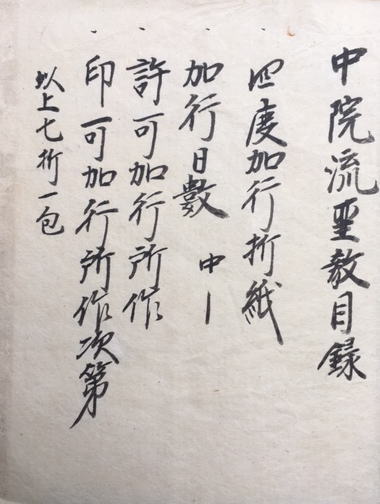 中院流聖教目録
四度加行折紙
加行日數 中〡
許可加行所作
印可加行所作次第
以上七折一包